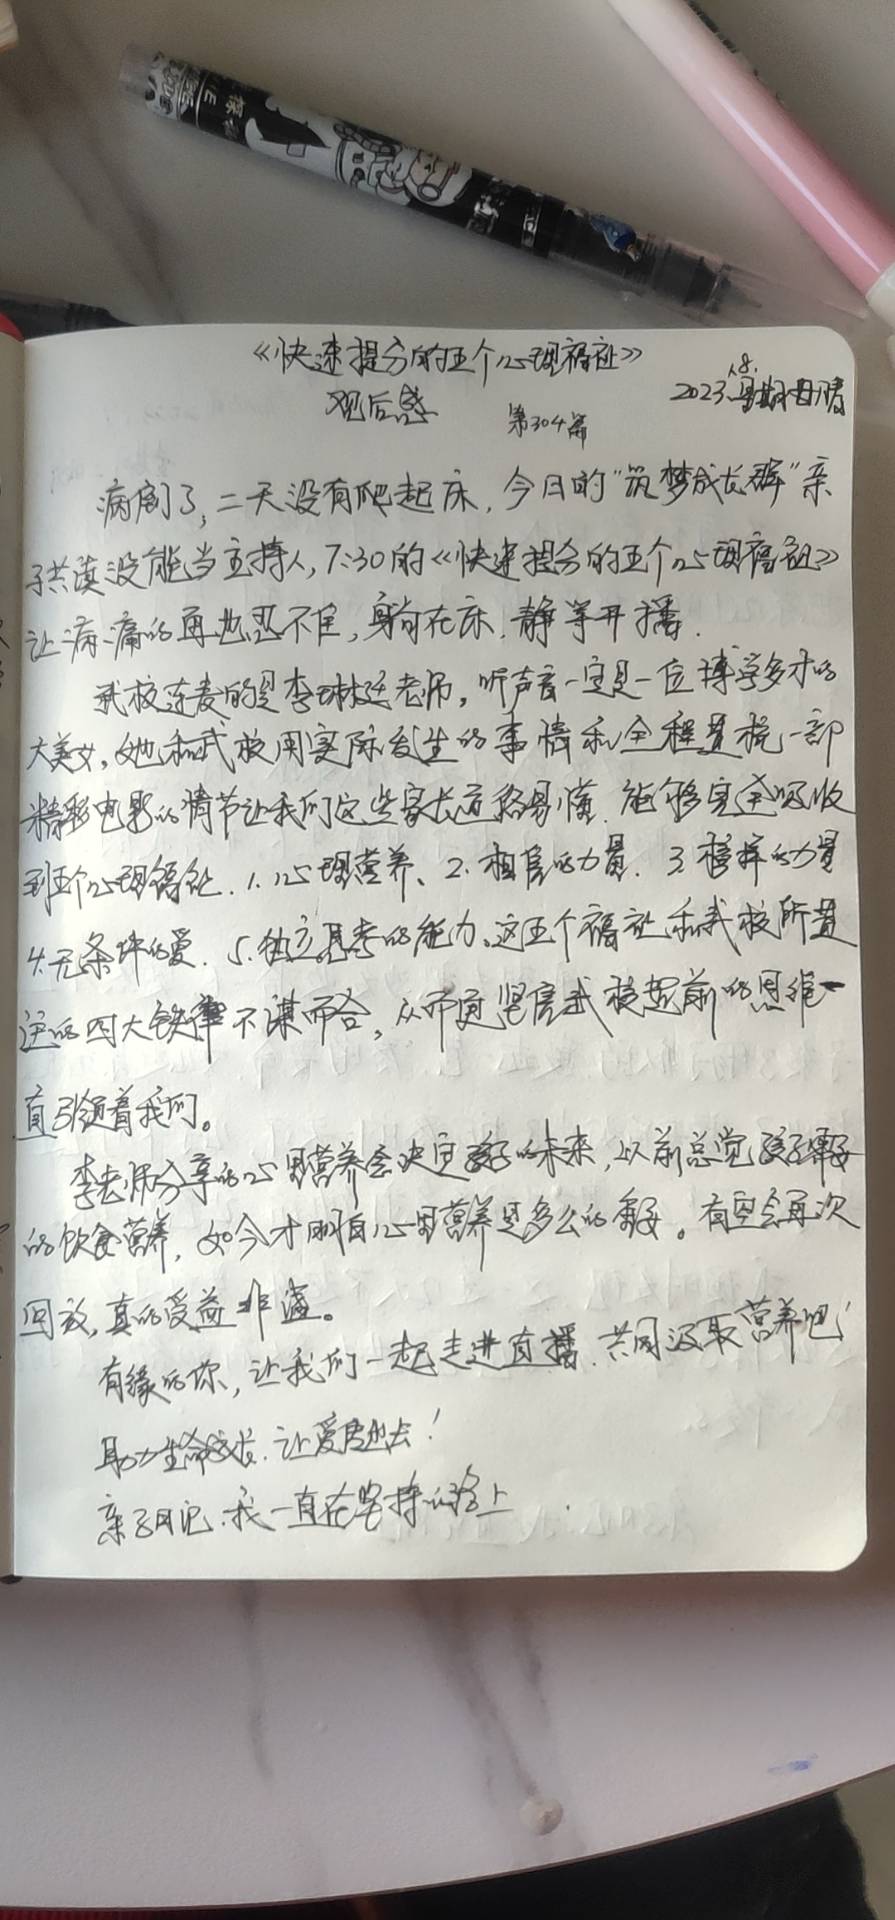 《快速提分的五个心理福祉》
观后感
第304篇
2023.1.8.星期日 晴
病倒了，二天没有爬起床，今日的“筑梦成长群”亲
子共读没能当主持人，7:30的《快速提分的五个心理福祉》
让病痛的再也忍不住，躺在床，静等开播.
武校连麦的是李琳廷老师，听声音一定是一位博学多才的
大美女，她和武校用实际发生的事情和全程置税一部
精彩电影的情节让我们这些家长通俗易懂.能够完全吸收
到五个心理福祉.1.心理营养、2.相信的力量.3.榜样的力量
4.无条件的爱.5.独立思考的能力、这五个福祉和武校所置
运的四大铁律不谋而合，从而更坚信武校超前的思维一
直引领着我们。
李老师分享的心理营养会决定孩子的未来，以前总觉孩子需要
的饮食营养，如今才明白心理营养是多么的重要。有空会再次
回放，真的受益非浅。
有缘的你，让我们一起走进直播.共同汲取营养吧！
助力生命成长.让爱传出去！
亲子日记.我一直在坚持的路上